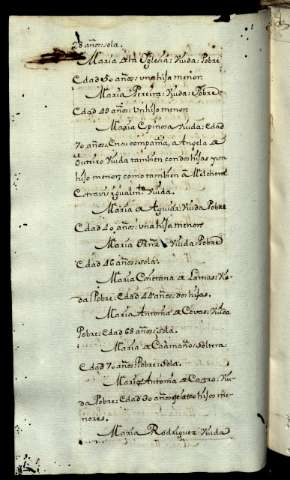 28 años: sola.
Maria de la Yglesia: Viuda: Pobre
Edad 50 años: un hijo menor
Maria Pereira: Viuda: Pobre
Edad 40 años: Un hijo menor
Maria Espinosa Viuda: Edad
70 años: En su compañia, a Angela de
Viuda tambien con dos hijas y un
hijo menor, como tambien a
igualmte Viuda.
Maria de Aguida: Viuda Pobre
Edad 40 años: una hija menor
Maria Viuda Pobre
Edad 46 años: sola.
Maria Cayetana de Lamas: Viu-
da Pobre: Edad 48 años: dos hijas.
Maria Antonia de Cobas: Viuda
Pobre: Edad 68 años: Sola.
Maria de Caamaño: Soltera
Edad 70 años: Pobre: Sola.
Maria Antonia de Castro: Viu-
da Pobre: Edad 50 años hijos me-
nores.
Maria Rodriguez Viuda